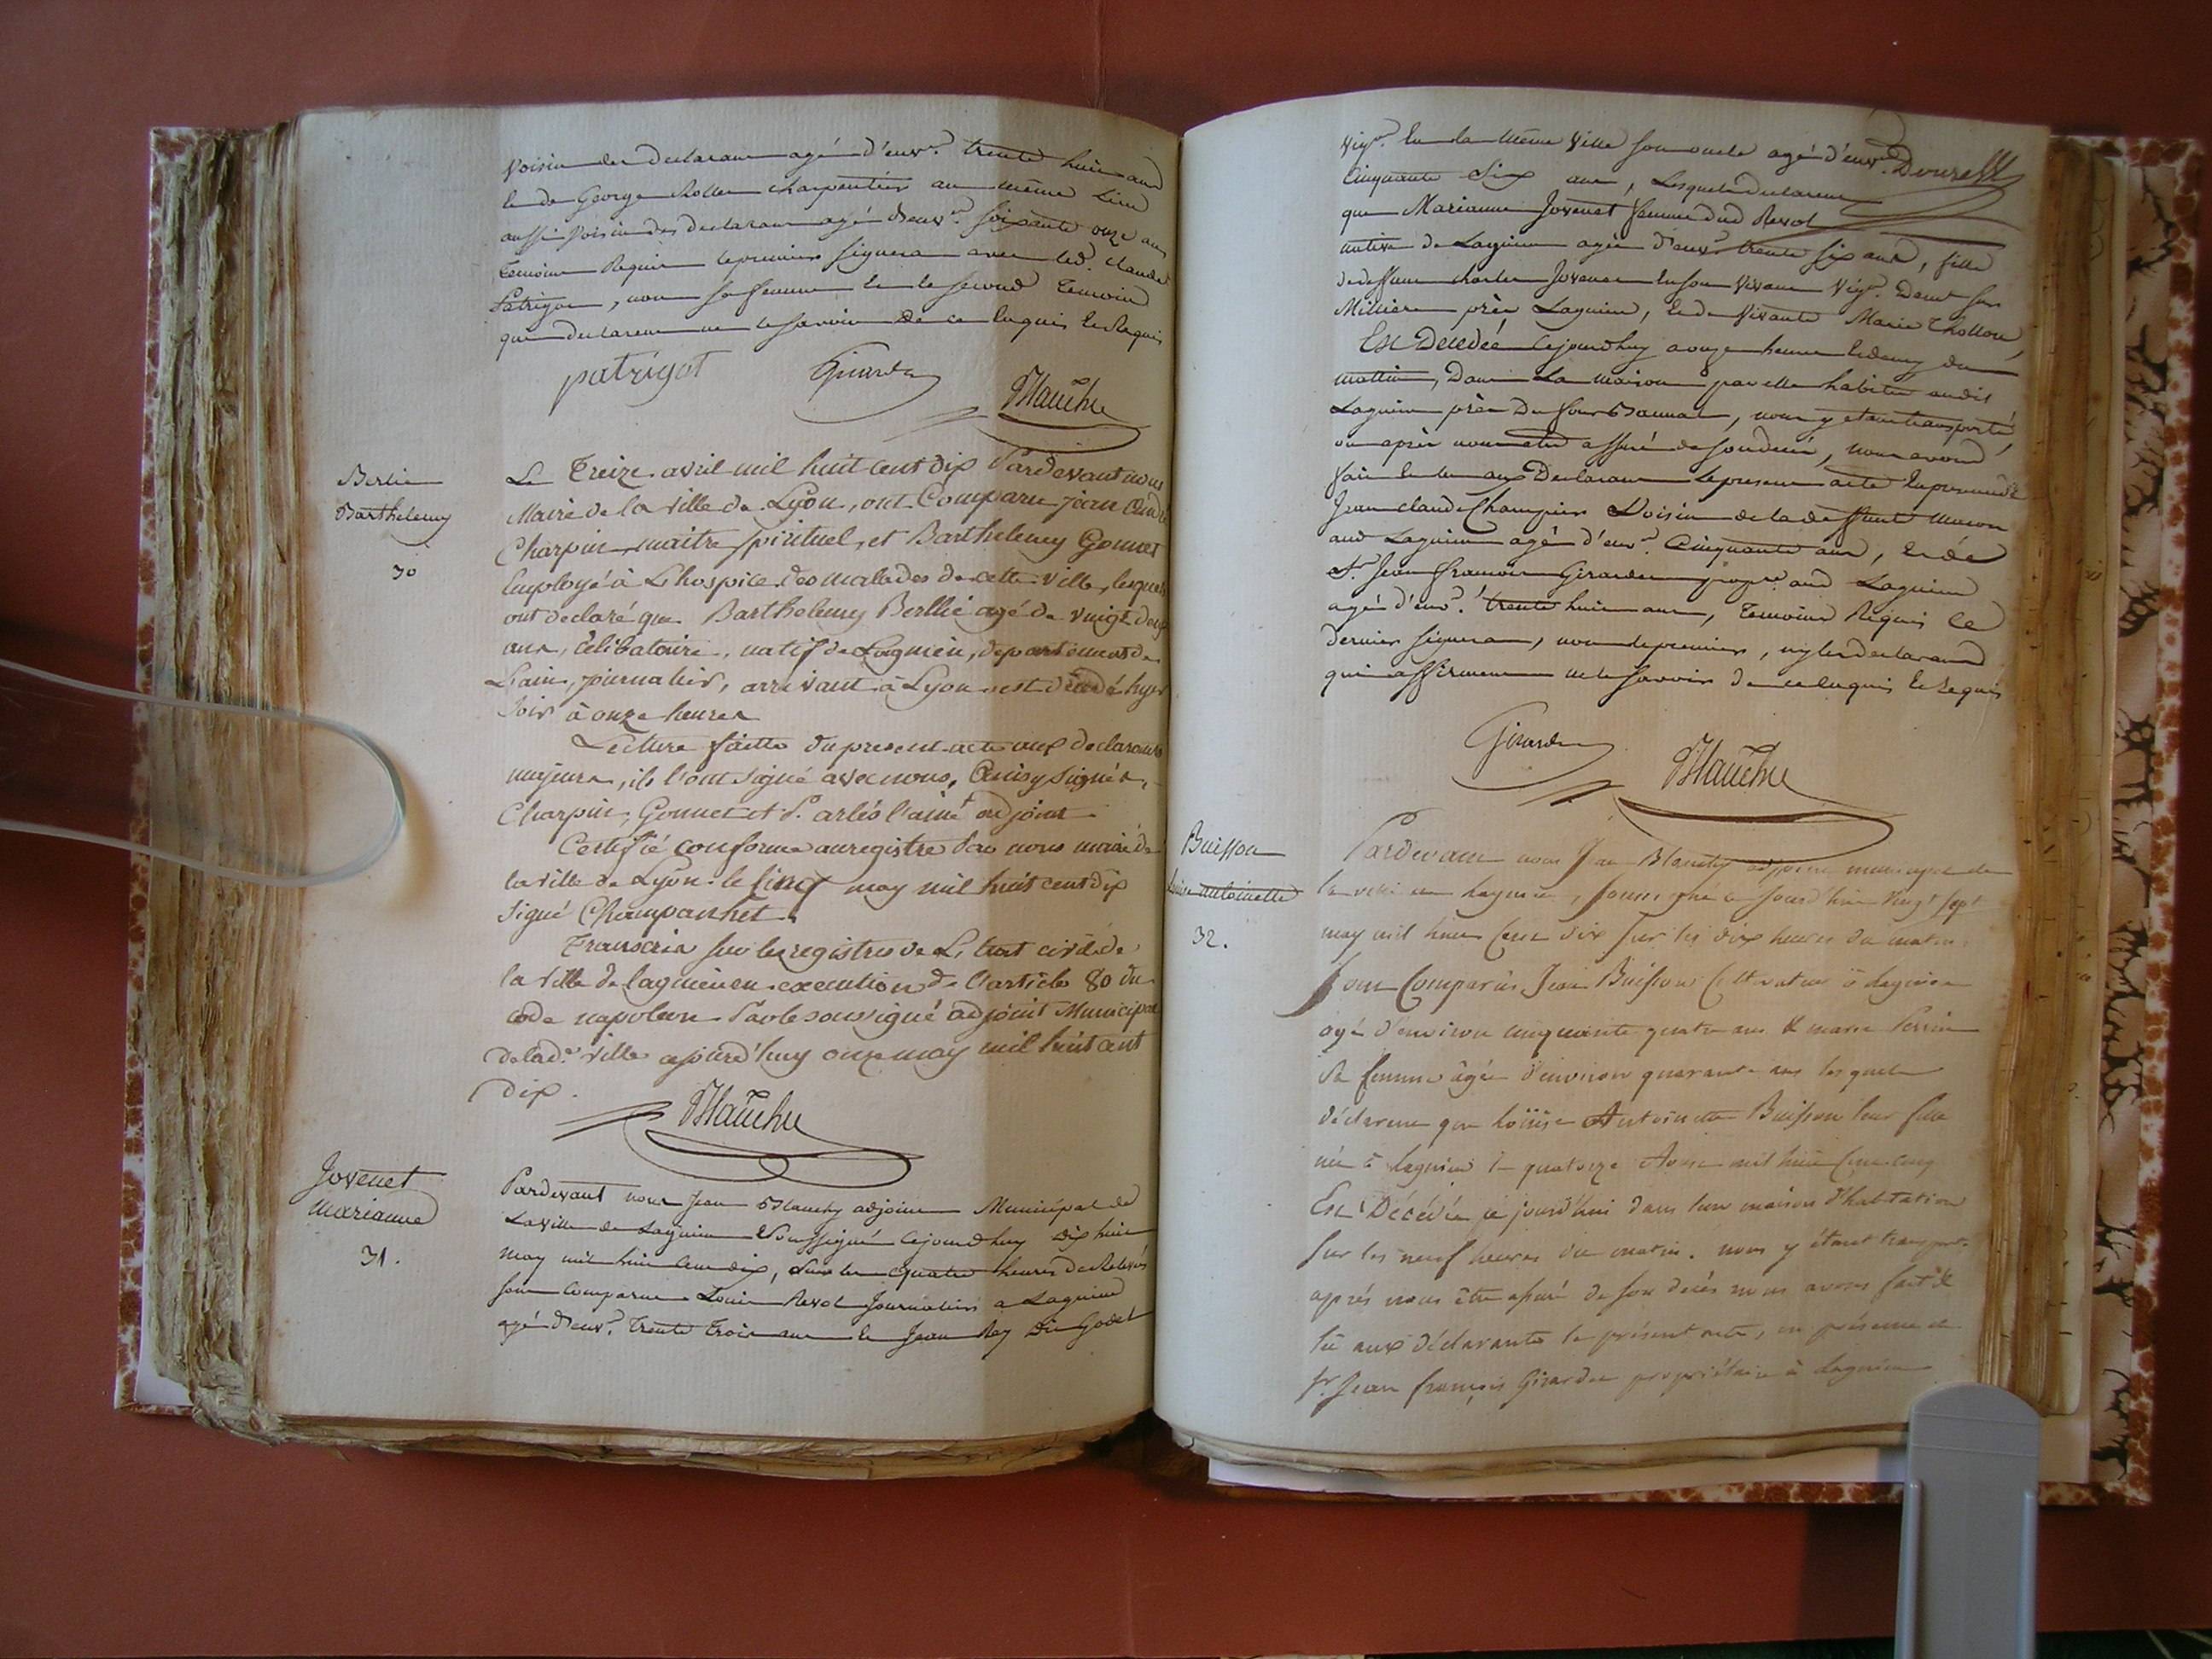 Voisin des declarans agé d'envn. trente huit ans
et de George Rollet charpentier au même Lieu
aussi Voisin des declarans agé d'envn. soixante onze ans
Temoins Requis le premier signera avec led. claude
Patrigot, non sa femme et le second Temoin
qui declarent ne le savoir de ce Enquis et Requis
patrigot Girardet Blanchy
Berlie
Barthelemy
30
Le Treize avril mil huit cent dix Pardevant nous
Maire de la ville de Lyon, ont Comparu jean
Charpin, maitre spirituel, et Barthelemy Gonnet
Employé à L'hospice des malades de cette ville, lesquels
ont declaré que Barthelemy Berllié agé de vingt deux
ans, célibataire, natif de Lagnieu, departement de
L'ain, journalier, arrivant à Lyon est décédé hyer
soir à onze heures
Lecture faitte du present acte aux declarants
majeurs, ils l'ont signé avec nous,
Charpin, Gonnet et P. arlés l'ainé adjoint
Certifié conforme au registre Par nous maire de
la ville de Lyon le cinq may mil huit cent dix
signé Champanhet
Transcris sur les registres de L'Etat civil de
la ville de Lagnieu en execution de l'article 80 du
code napoleon Par le soussigné adjoint Municipal
de lade. ville cejourd'huy onze may mil huit cent
dix.
Blanchy
Jovenet
Marianne
31.
Pardevant nous Jean Blanchy adjoint Municipal de
La ville de Lagnieu Soussigné Cejourd'huy Dix huit
may mil huit Cent dix, Sur les Quatre heures de Relevés
sont Comparus Louis Revol Journalier a Lagnieu
agé d'envn. Trente Trois ans et Jean Rey Dit Godet
Vign. En la même Ville son oncle agé d'envn.
Cinquante Six ans, Lesquels declarent
que Marianne Jovenet femme dud Revol
native de Lagnieu agée d'envn. trente six ans, fille
de deffunt charles Jovenet En son Vivant Vign. Demt sur
Milliere près Lagnieu, et de Vivante Marie Thollon,
Est Décédée Cejourdhuy a onze heures et demy du
mattin, Dans La maison par elle habitée audit
Lagnieu près Du four Bannal, nous y etant transporté
ou après nous etre assuré de son decès, nous avons
fait et lu aux Declarans le present acte En presence de
Jean claude Champier Voisin de la deffunte maçon
aud Lagnieu agé d'envn. Cinquante ans, et de
Sr. Jean françois Girardet propre. aud Lagnieu
agé d'envn. trente huit ans, Temoins Requis le
dernier signera, non le premier, ny les declarans
qui affirment ne le savoir de ce Enquis et Requis
Girardet Blanchy
Buisson
Louise antoinette
32.
Pardevant nous Jean Blanchy adjoint municipal de
la ville de Lagnieu, soussigné ce jourd'hui vingt sept
may mil huit Cent dix sur les dix heures du matin
sont Comparus Jean Buisson Cultivateur à Lagnieu
agé d'environ cinquante quatre ans & marie Perrin
sa femme âgée d'environ quarante ans lesquels
déclarent que Loüise Antoinette Buisson leur fille
née à Lagnieu le quatorze mil huit Cent cinq
Est Décédée ce jourd'hui dans leur maison d'habitation
sur les neuf heures du matin. nous y étant transporté
après nous être assuré de son decès nous avons fait &
lû aux déclarants le présent acte, en présence de
Sr. Jean françois Girardet propriétaire à Lagnieu